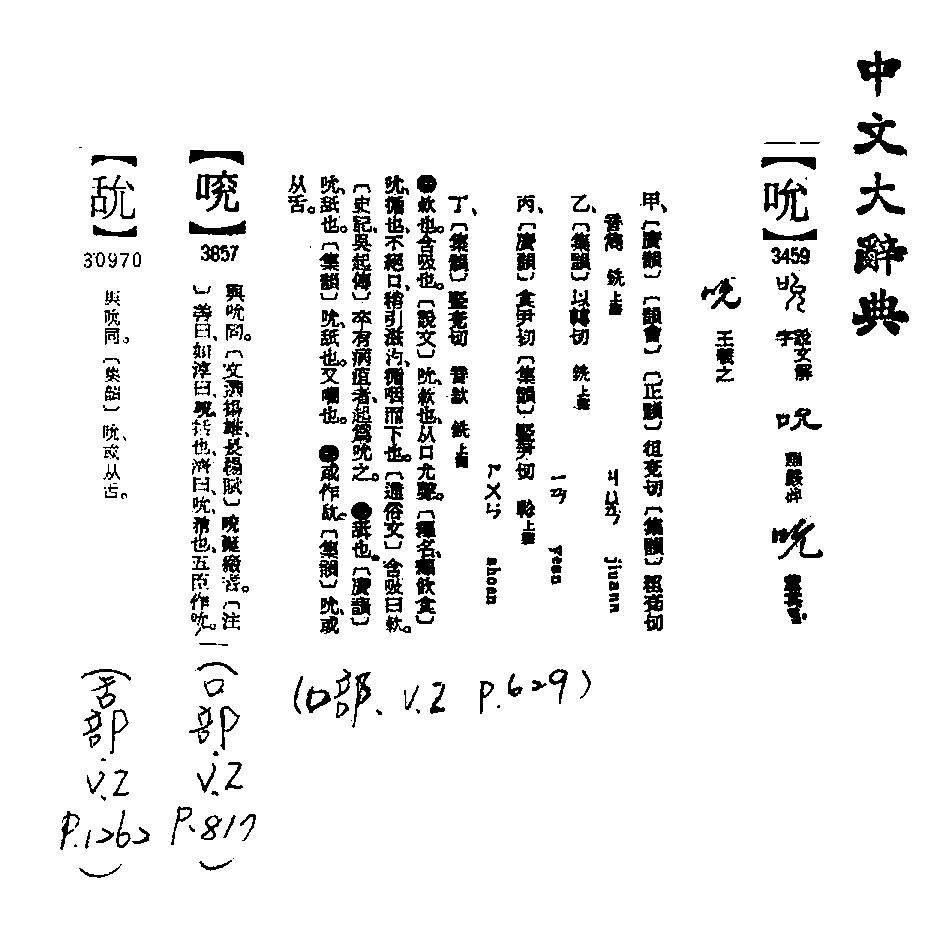 中文大辭典
【吮】
3459
說文解字
王羲之
甲、〔廣韻〕〔韻會〕〔正韻〕徂兗切〔集韻〕粗兗切
音雋 銑上聲
ㄐㄩㄢˋ jiuann
乙、〔集韻〕以轉切 銑上聲
ㄧㄢˇ yean
丙、〔廣韻〕食尹切〔集韻〕豎尹切 軫上聲
丁、〔集韻〕豎兗切 銑上聲
ㄕㄨㄢˇ shoan
㊀欶也。含吸也。〔說文〕吮、欶也、从口允聲。〔釋名、釋飲食〕
吮、循也、不絕口、稍引滋汋、循咽而下也。〔通俗文〕含吸曰欶。
〔史記、吳起傳〕卒有病疽者、起爲吮之。㊁舐也。〔廣韻〕
吮、舐也。〔集韻〕吮、舐也。又嗍也。㊂或作㕙。〔集韻〕吮、或
从舌。
(口部、V.2 P.629)
3857
與吮同。〔文選、揚雄、長楊賦〕吮鋋瘢耆。〔注
〕善曰、如淳曰、吮、括也、濟曰、吮、䑛也、五臣作吮。
(口部.V.2 P.817)
30970
與吮同。〔集韻〕吮、或从舌。
(舌部.V.2 P.1262)